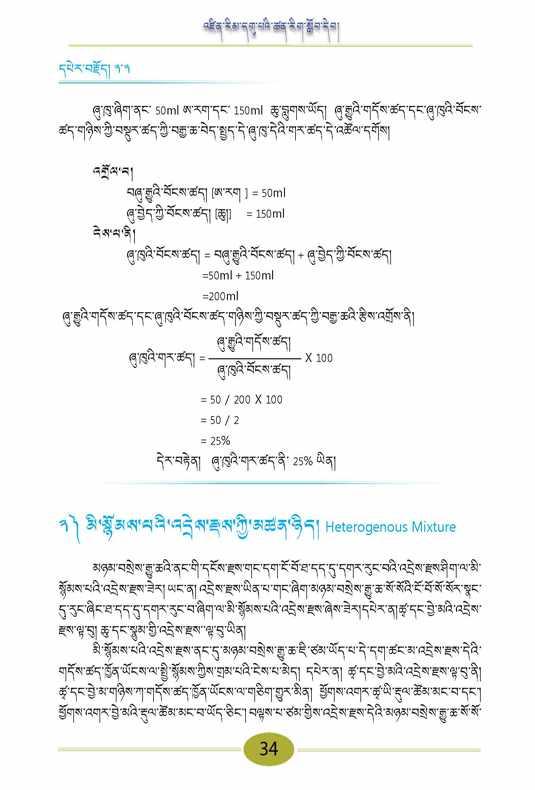 འཛིན་རིམ་དགུ་པའི་ཚན་རིག་སློབ་དེབ།
དཔེར་བརྗོད། ༢.༢
ཞུ་ཁུ་ཞིག་ནང་ 50ml ཨ་རག་དང་ 150ml ཆུ་བླུགས་ཡོད། ཞུ་རྒྱུའི་གདོས་ཚད་དང་ཞུ་ཁུའི་བོངས་
ཚད་གཉིས་ཀྱི་བསྡུར་ཚད་ཀྱི་བརྒྱ་ཆ་བེད་སྤྱད་དེ་ཞུ་ཁུ་དེའི་གར་ཚད་དེ་འཚོལ་དགོས།
འགྲོལ་བ།
བཞུ་རྒྱུའི་བོངས་ཚད། [ཨ་རག ] = 50ml
ཞུ་བྱེད་ཀྱི་བོངས་ཚད། [ཆུ།] = 150ml
དེས་ན་ནི།
ཞུ་ཁུའི་བོངས་ཚད། = བཞུ་རྒྱུའི་བོངས་ཚད། + ཞུ་བྱེད་ཀྱི་བོངས་ཚད།
=50ml + 150ml
=200ml
ཞུ་རྒྱུའི་གདོས་ཚད་དང་ཞུ་ཁུའི་བོངས་ཚད་གཉིས་ཀྱི་བསྡུར་ཚད་ཀྱི་བརྒྱ་ཆའི་རྩིས་འགྲོས་ནི།
ཞུ་རྒྱུའི་གདོས་ཚད།
ཞུ་ཁུའི་གར་ཚད། = X 100
ཞུ་ཁུའི་བོངས་ཚད།
= 50 / 200 X 100
= 50 / 2
= 25%
དེར་བརྟེན། ཞུ་ཁུའི་གར་ཚད་ནི་ 25% ཡིན།
༢༽ མི་སྙོམས་པའི་འདྲེས་རྫས་ཀྱི་མཚན་ཉིད། Heterogenous Mixture
མཉམ་བསྲེས་རྒྱུ་ཆའི་ནང་གི་དངོས་རྫས་གང་དག་ངོ་བོ་ཐ་དད་དུ་དགར་རུང་བའི་འདྲེས་རྫས་ཤིག་ལ་མི་
སྙོམས་པའི་འདྲེས་རྫས་ཟེར། ཡང་ན། འདྲེས་རྫས་ཡིན་པ་གང་ཞིག་མཉམ་བསྲེས་རྒྱུ་ཆ་སོ་སོའི་ངོ་བོ་སོ་སོར་སྣང་
དུ་རུང་ཞིང་ཐ་དད་དུ་དགར་རུང་བ་ཞིག་ལ་མི་སྙོམས་པའི་འདྲེས་རྫས་ཞེས་ཟེར། དཔེར་ན། ཚྭ་དང་བྱེ་མའི་འདྲེས་
རྫས་ལྟ་བུ། ཆུ་དང་སྣུམ་གྱི་འདྲེས་རྫས་ལྟ་བུ་ཡིན།
མི་སྙོམས་པའི་འདྲེས་རྫས་ནང་དུ་མཉམ་བསྲེས་རྒྱུ་ཆ་ཇི་ཙམ་ཡོད་པ་དེ་དག་ཚང་མ་འདྲེས་རྫས་དེའི་
གདོས་ཚད་ཁྱོན་ཡོངས་ལ་སྤྱི་སྙོམས་ཀྱིས་གྲམ་པའི་ངེས་པ་མེད། དཔེར་ན། ཚྭ་དང་བྱེ་མའི་འདྲེས་རྫས་ལྟ་བུ་ནི།
ཚྭ་དང་བྱེ་མ་གཉིས་ཀ་གདོས་ཚད་ཁྱོན་ཡོངས་ལ་གཅིག་གྱུར་མིན། ཕྱོགས་འགར་ཚྭ་ཡི་རྡུལ་ཚོམ་མང་བ་དང་།
ཕྱོགས་འགར་བྱེ་མའི་རྡུལ་ཚོམ་མང་བ་ཡོད་ཅིང་། བལྟས་པ་ཙམ་གྱིས་འདྲེས་རྫས་དེའི་མཉམ་བསྲེས་རྒྱུ་ཆ་སོ་སོ་
34